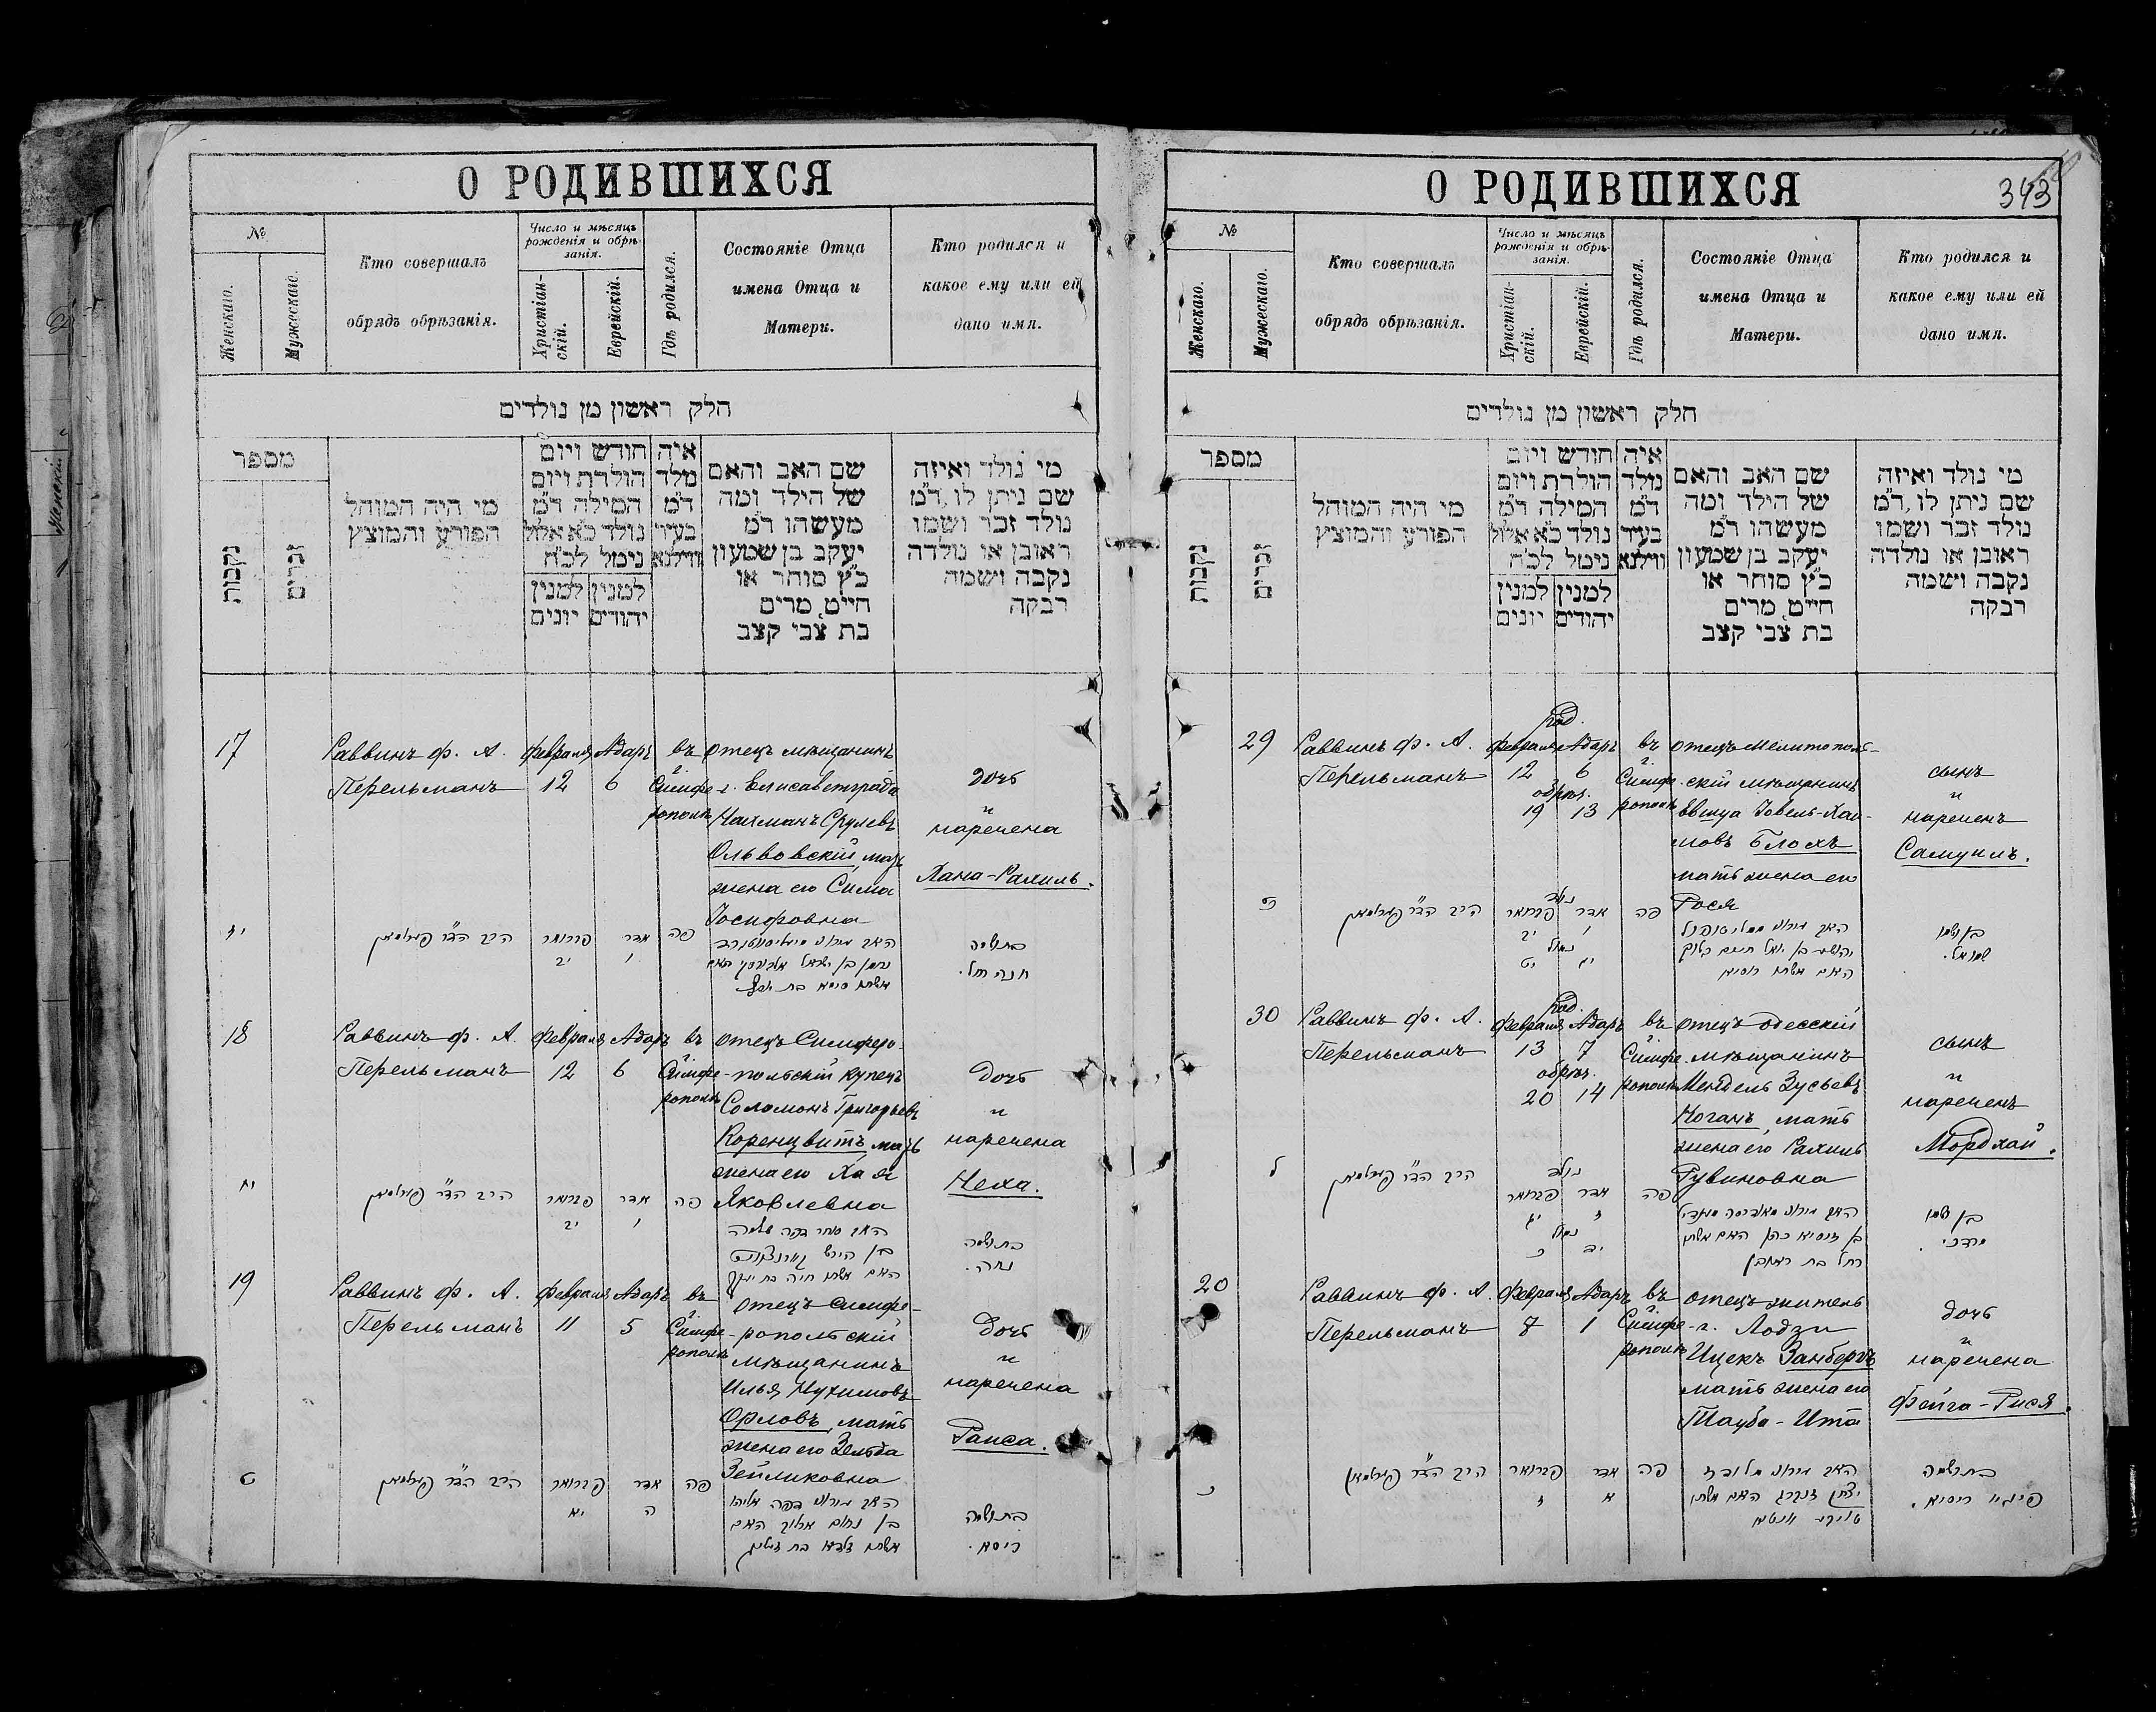 О РОДИВШИХСЯ
№
Женскаго.
Мужескаго.
Кто совершалъ
обрядъ обрѣзанія.
Число и мѣсяцъ
рожденія и обрѣ-
занія.
Христіан-
скій.
Еврейскій.
Гдѣ родился.
Состояніе Отца
имена Отца и
Матери.
Кто родился и
какое ему или ей
дано имя.
חלק ראשון מן נולדים
מספר
נקבות
זכרים
מי היה המוהל
הפורע והמוצץ
חודש ויום
הולדת ויום
המילה ד״מ
נולד כ״א אלול
נימל לכ״ח
למנין
יונים
למנין
יהודים
איה
נולד
ד״מ
בעיר
ווילנא
שם האב והאם
של הילד ומה
מעשהו ד״מ
יעקב בן שמעון
כ״ץ סוחר או
חייט, מרים
בת צבי קצב
מי נולד ואיזה
שם ניתן לו, ד״מ
נולד זכר ושמו
ראובן או נולדה
נקבה ושמה
רבקה
17
Раввинъ Ф. А.
Перельманъ
Февраля
12
Адаръ
6
въ
г.
Симфе-
рополѣ
отецъ мѣщанинъ
г. Елисаветграда
Нахманъ Срулевъ
Ольвовскій, мать
жена его Сима
Іосифовна
дочь
и
наречена
Хана-Рахиль.
הרב הד״ר פערלמאן
פברואר
יב
אדר
ו
פה
חנה רחל.
18
Раввинъ Ф. А.
Перельманъ
Февраля
12
Адаръ
6
въ
г.
Симфе-
рополѣ
отецъ Симферо-
польскій купецъ
Соломонъ Григорьевъ
Коренцвитъ, мать
жена его Хая
Яковлевна
дочь
и
наречена
Неха.
יח
הרב הד״ר פערלמאן
פברואר
יב
אדר
ו
פה
נחה.
19
Раввинъ Ф. А.
Перельманъ
Февраля
11
Адаръ
5
въ
г.
Симфе-
рополѣ
отецъ Симфе-
ропольскій
мѣщанинъ
Илья Нухимовъ
Орловъ, мать
жена его Зельда
Зейликовна
дочь
и
наречена
Раиса.
הרב הד״ר פערלמאן
פברואר
יא
אדר
ה
פה
רייסא.
О РОДИВШИХСЯ
343
№
Женскаго.
Мужескаго.
Кто совершалъ
обрядъ обрѣзанія.
Число и мѣсяцъ
рожденія и обрѣ-
занія.
Христіан-
скій.
Еврейскій.
Гдѣ родился.
Состояніе Отца
имена Отца и
Матери.
Кто родился и
какое ему или ей
дано имя.
חלק ראשון מן נולדים
מספר
נקבות
זכרים
מי היה המוהל
הפורע והמוצץ
חודש ויום
הולדת ויום
המילה ד״מ
נולד כ״א אלול
נימל לכ״ח
למנין
יונים
למנין
יהודים
איה
נולד
ד״מ
בעיר
ווילנא
שם האב והאם
של הילד ומה
מעשהו ד״מ
יעקב בן שמעון
כ״ץ סוחר או
חייט, מרים
בת צבי קצב
מי נולד ואיזה
שם ניתן לו, ד״מ
נולד זכר ושמו
ראובן או נולדה
נקבה ושמה
רבקה
29
Раввинъ Ф. А.
Перельманъ
род.
Февраля Адаръ
12 6
обрѣз.
19 13
въ
г.
Симфе-
рополѣ
отецъ Мелитополь-
скій мѣщанинъ
Овшуа Іовель-Хаи-
мовъ Блохъ
мать жена его
Рося
сынъ
и
нареченъ
Самуилъ.
הרב הד״ר פערלמאן
נולד
פברואר אדר
יב ו
נמול
יט יג
פה
בן ושמו
שמואל.
30
Раввинъ Ф. А.
Перельманъ
род.
Февраля Адаръ
13 7
обрѣз.
20 14
въ
г.
Симфе-
рополѣ
отецъ Одесскій
мѣщанинъ
Мендель Зусьевъ
Коганъ, мать
жена его Рахиль
Рувиновна
сынъ
и
нареченъ
Мордхай.
ל
הרב הד״ר פערלמאן
נולד
פברואר אדר
יג ז
נמול
כ יד
פה
רחל בת ראובן
בן ושמו
מרדכי.
20
Раввинъ Ф. А.
Перельманъ
Февраля
7
Адаръ
1
въ
г.
Симфе-
рополѣ
отецъ житель
г. Лодзи
Ицекъ Занбергъ
мать жена его
Тауба-Ита
дочь
и
наречена
Фейга-Рися.
כ
הרב הד״ר פערלמאן
פברואר
ז
אדר
א
פה